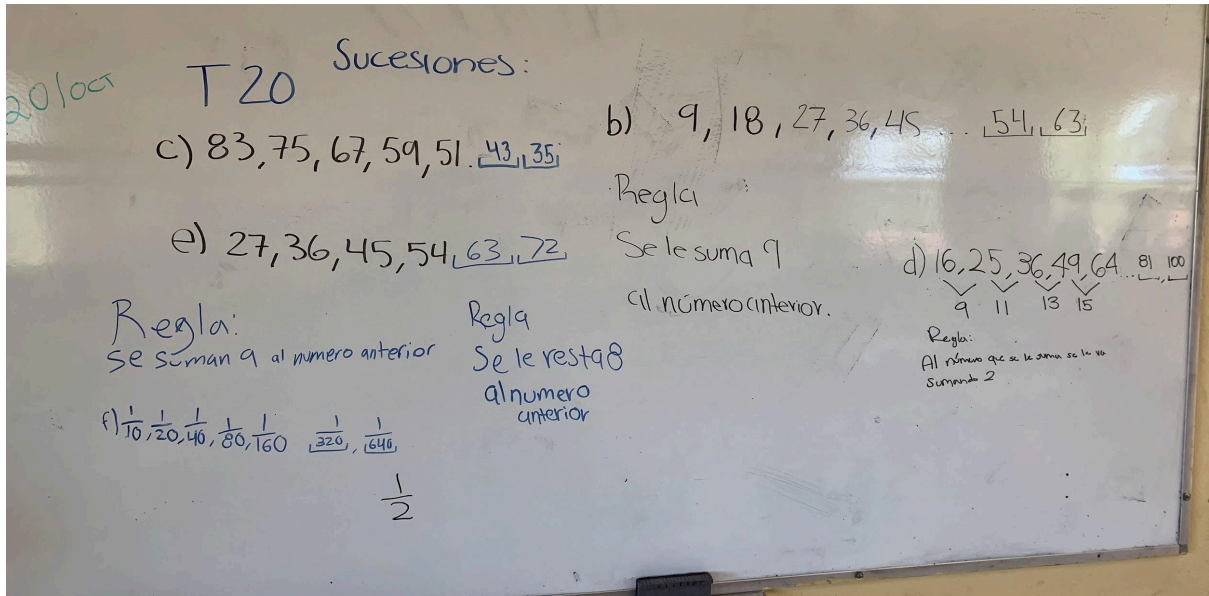 20/oct
T 20 Sucesiones:
c) 83, 75, 67, 59, 51. 43, 35
e) 27, 36, 45, 54, 63, 72
Regla:
se suman 9 al numero anterior
Regla
Se le resta 8
al numero
anterior
f) 1/10, 1/20, 1/40, 1/80, 1/160 1/320, 1/640
1/2
b) 9, 18, 27, 36, 45 ... 54, 63
Regla
Se le suma 9
al número anterior.
d) 16, 25, 36, 49, 64 ... 81, 100
9 11 13 15
Regla:
Al número que se le suma se le va
sumando 2